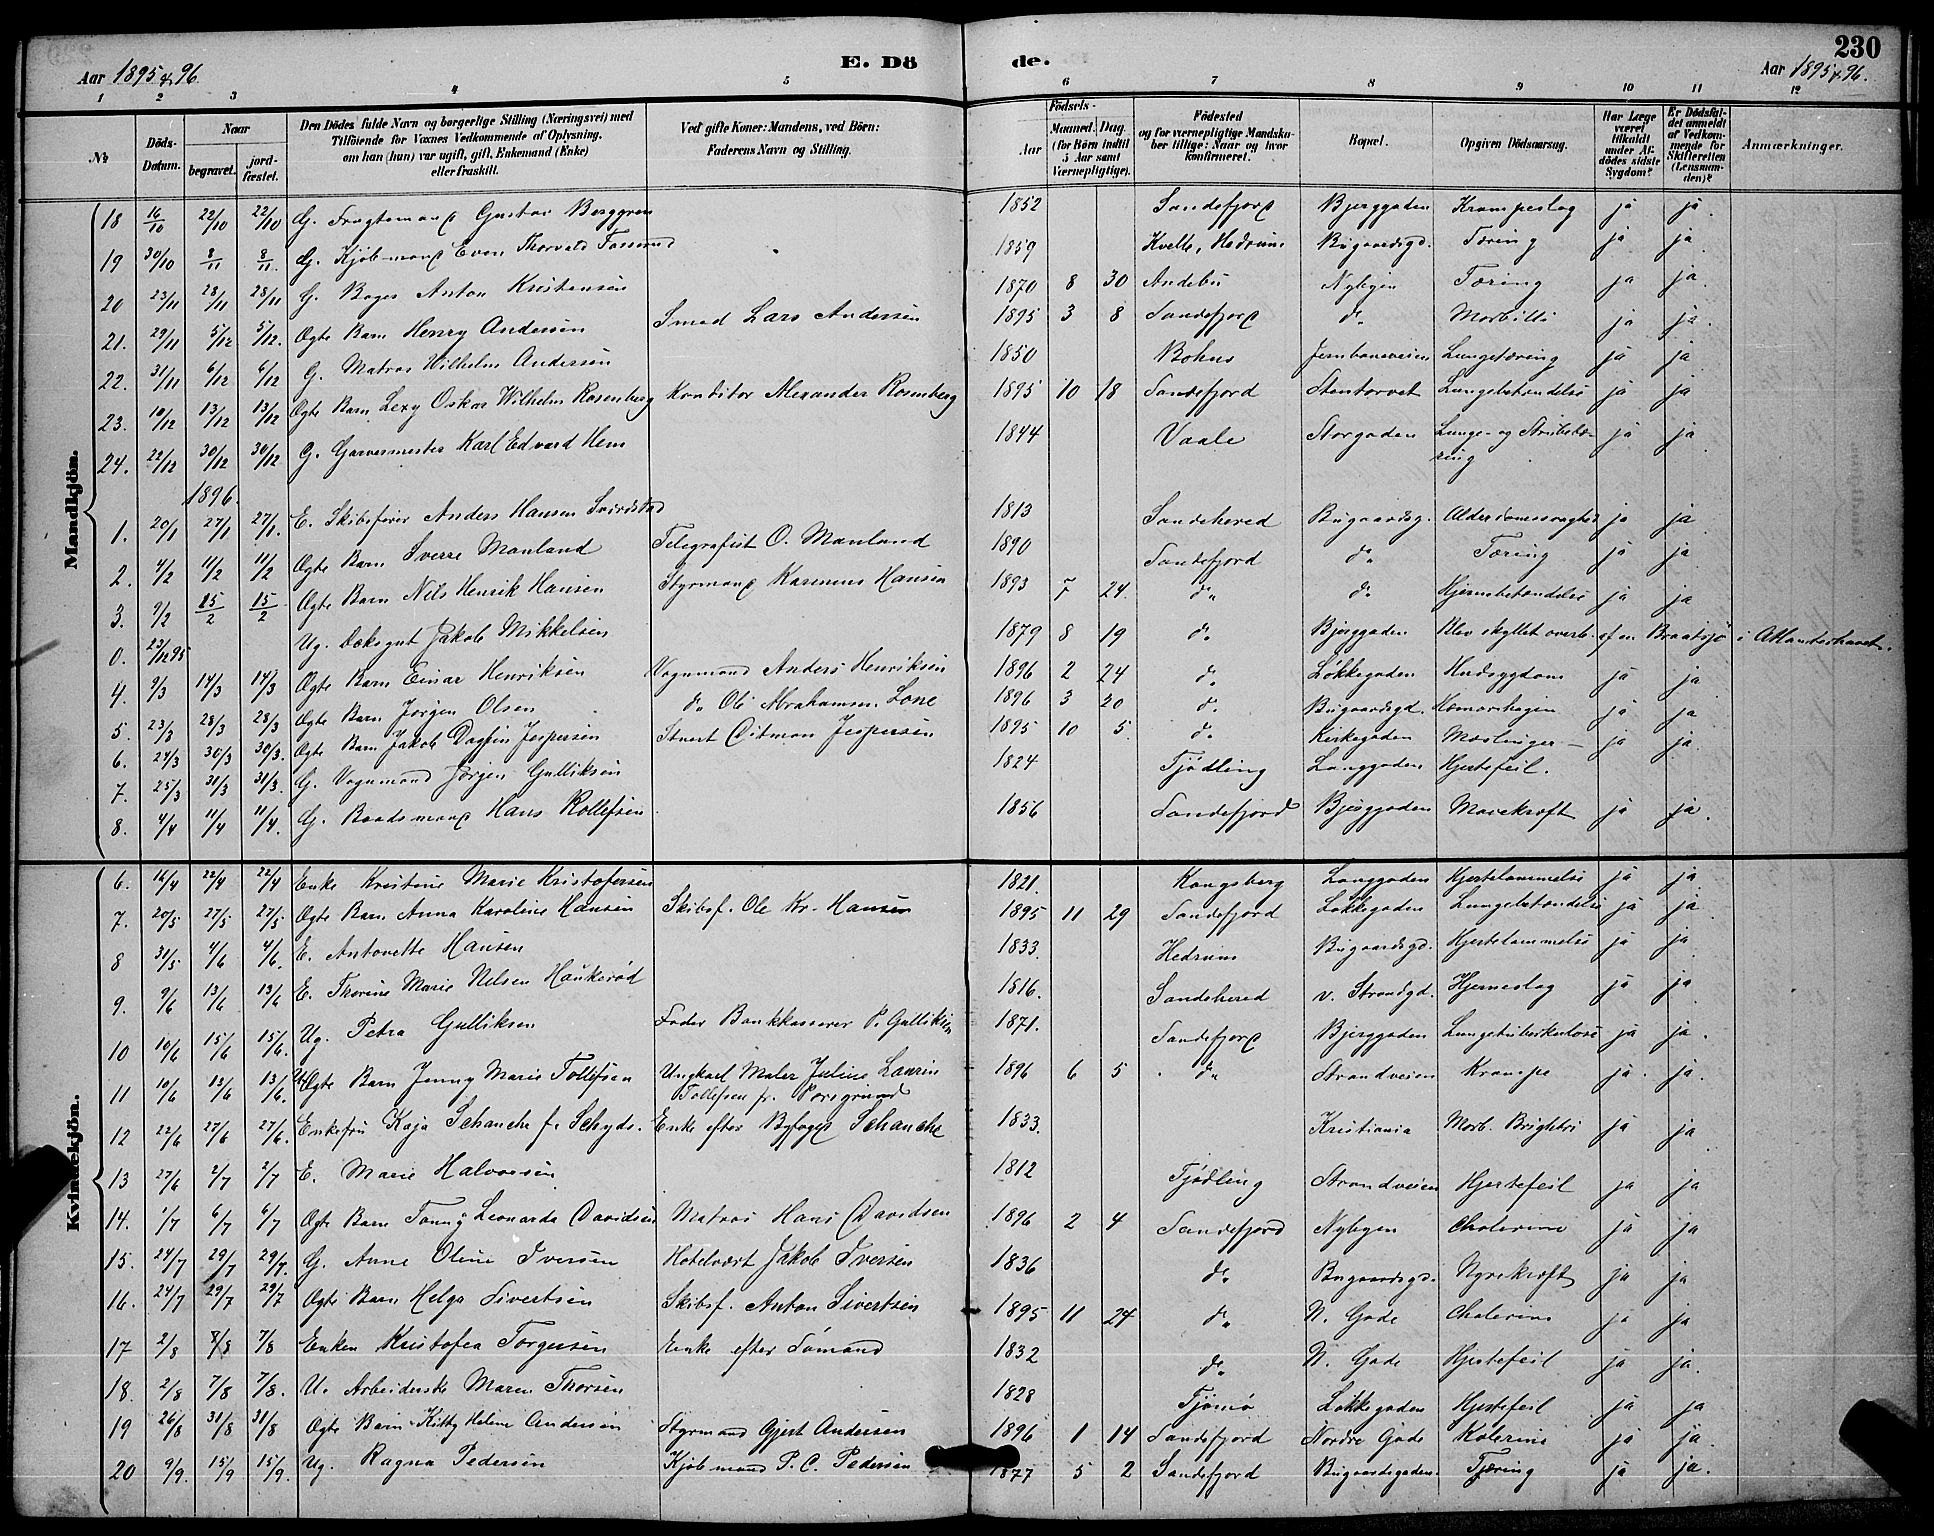 230
Aar 1895 & 96.
E. Dö
de.
Aar 1895 & 96.
1 2 3 4 5 6 7 8 9 10 11 12
№ Döds-Datum. Naar begravet. jord-fæstet. Den Dödes fulde Navn og borgerlige Stilling (Næringsvei) med Tilföiende for Voxnes Vedkommende af Oplysning, om han (hun) var ugift, gift, Enkemand (Enke) eller fraskilt. Ved gifte Koner: Mandens, ved Börn: Faderens Navn og Stilling. Födsels- Aar Maaned. Dag. (for Börn indtil 5 Aar samt Værnepligtige). Födested og for værnepligtige Mandskaber tillige: Naar og hvor konfirmeret. Bopæl. Opgiven Dödsaarsag. Har Læge været tilkaldt under Afdödes sidste Sygdom? Er Dödsfaldet anmeldt af Vedkommende for Skifteretten (Lensmanden)? Anmærkninger.
Mandkjön.
18 16/10 22/10 22/10 G. Fragtemand Gustav Berggren 1852 Sandefjord Bjerggaden Krampeslag ja ja.
19 30/10 8/11 8/11. G. Kjøbmand Even Thorvald 1859 Kvelle, Hedrum Bugaardsgd. Tæring ja ja
20 23/11 28/11 28/11 G. Bager Anton Kristensen 1870 8 30 Andebu Nybyen Tæring ja ja
21. 29/11 5/12 5/12. Ægte Barn Henry Andersen Smed Lars Andersen 1895 3 8 Sandefjord do Morbilli ja ja.
22. 31/11 6/12 6/12 G. Matros Wilhelm Andersen 1850 Bohus Jernbaneveien Lungetæring ja ja
23. 10/12 13/12 13/12 Ægte Barn Lexy Oskar Wilhelm Rosenberg Konditor Alexander Rosenberg 1895 10 18 Sandefjord Stentorvet Lungebetændelse ja ja
24. 22/12 30/12 30/12 G. Garvermester Karl Edvard Hem 1844 Vaale Storgaden Lunge- og Strubetæring ja ja
1896.
1. 20/1 27/1 27/1. E. Skibsfører Anders Hansen 1813 Sandeherred Bugaardsg. Alderdomssvaghed ja ja
2. 4/2 11/2 11/2 Ægte Barn Sverre Manland Telegrafist O. Manland 1890 Sandefjord do Tæring ja ja.
3. 9/2 15/2 15/2. Ægte Barn Nils Henrik Hansen Styrmand Karenius Hansen 1893 7 24. do do Hjernebetændelse ja ja
0. 23/12 95 Ug. Dæksgut Jakob Mikkelsen 1879 8 19 do Bjerggaden Blev skyllet overb. af en Braatsjø i Atlanterhavet.
4. 9/3 14/3 14/3 Ægte Barn Einar Henriksen Vognmand Anders Henriksen 1896 2 24 do Løkkegaden Hudsygdom ja ja
5. 23/3 28/3 28/3 Ægte Barn Jørgen Olsen do Ole Abrahamsen Lone 1896 3 20 do Bugaardsgd. ja ja
6. 24/3 30/3 30/3. Ægte Barn Jakob Dagfin Jespersen Stuert Ditman Jespersen 1895 10 5. do Kirkegaden Meslinger ja ja.
7. 25/3 31/3 31/3. G. Vognmand Jørgen Gulliksen 1824 Tjødling Langgaden Hjertefeil.
8. 4/4 11/4 11/4. G. Baadsmand Hans Rollefsen 1856 Sandefjord Bjerggaden Mavekræft ja ja.
Kvindekjön.
6. 16/4 22/4 22/4 Enke Kristine Marie Kristofersen 1821. Kongsberg Langgaden Hjertelammelse ja ja
7. 20/5 27/5 27/5 Ægte Barn Anna Karoline Hansen Skibsf. Ole Kr. Hansen 1895 11 29 Sandefjord Løkkegaden Lungebetændelse ja ja.
8 31/5 4/6 4/6. E. Antonette Hansen 1833. Hedrum Bugaardsgd. Hjertelammelse ja ja
9. 9/6 13/6 13/6 E. Thorine Marie Nilsen Haukerød 1816. Sandeherred v. Strandgd. Hjerneslag ja ja
10 10/6 15/6 15/6. Ug. Petra Gulliksen Fader Bankkasserer P. Gulliksen 1871. Sandefjord Bjerggaden Lungetuberkulose ja ja.
11 10/6 13/6 13/6. Uægte Barn Jenny Marie Tollefsen Ungkarl Maler Julius Laurin Tollefsen fr. Porsgrund 1896 6 5 do Strandveien Krampe ja ja.
12 22/6 27/6 27/6. Enkefru Kaja Schanche f. Schyds. Enke efter Byfoged Schanche 1833. Kristiania Morb. Brighti ja ja
13 27/6 2/7 2/7 E. Marie Halvorsen 1812 Tjødling Strandveien Hjertefeil ja ja
14. 1/7 6/7 6/7 Ægte Barn Fanny Leonarda Davidsen Matros Hans Davidsen 1896 2 4 Sandefjord Nybyen Cholerine ja ja
15. 24/7 29/7 29/7. G. Anne Oline Iversen Hotelvært Jakob Iversen 1836 do Bugaardsgd. Nyrekræft ja ja
16. 24/7 29/7 29/7 Ægte Barn Helga Sivertsen Skibsf. Anton Sivertsen 1895 11 24 do N. Gade Cholerine ja ja
17 2/8 7/8 7/8 Enken Kristofea Torgersen Enke efter Sømand 1832 do N. Gade Hjertefeil ja ja.
18. 2/8 7/8 7/8. U. Arbeiderske Maren Thorsen 1828 Tjømø Løkkegaden Hjertefeil ja ja
19 26/8 31/8 31/8 Ægte Barn Kitty Helene Andersen Styrmand Gjert Andersen 1896 1 14 Sandefjord Nordre Gade Kolerine ja ja.
20 9/9. 15/9 15/9. Ug. Ragna Pedersen Kjøbmand P. C. Pedersen 1877 5 2 Sandefjord Bugaardsgaden. Tæring ja ja.